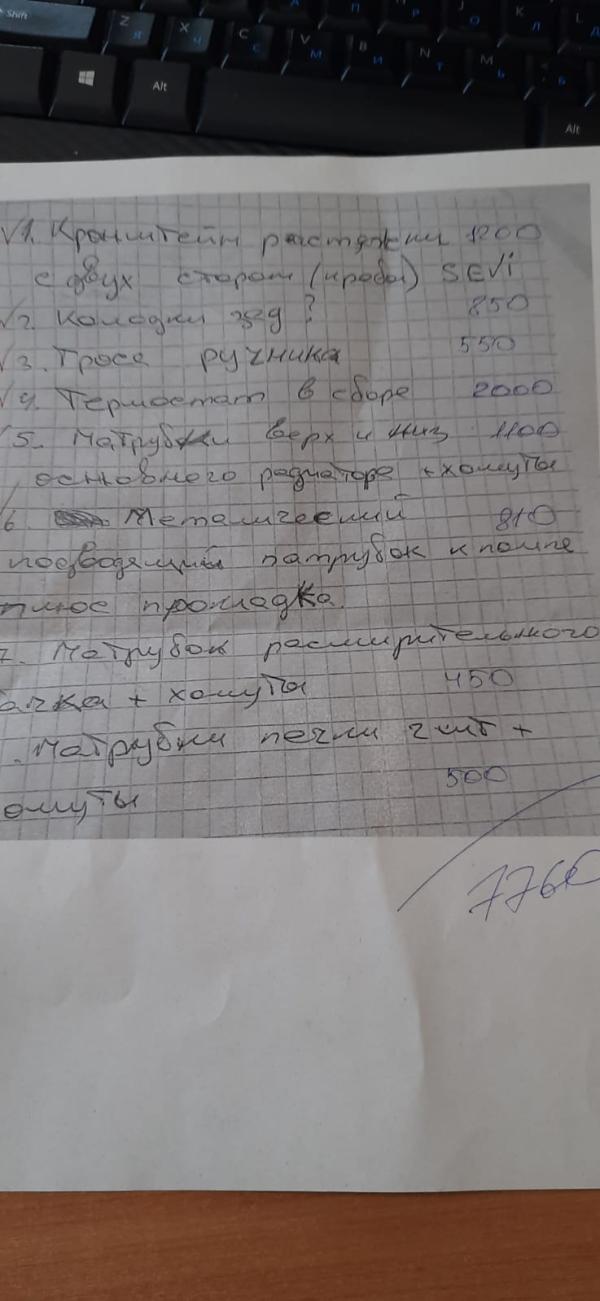 Shift
Z Я
X Ч
C С
V М
B И
N Т
M Ь
Б
П
Р
J О
K Л
L Д
Alt
Alt
√1. Кронштейн растяжки 1200
с двух сторон (крабы) SEVi
√2. Колодки зад ? 850
√3. Троса ручника 550
√4. Термостат в сборе 2000
√5. Патрубки верх и низ 1100
основного радиаторе + хомуты
6. Металический 810
подводящий патрубок к помпе
плюс прокладка.
7. Патрубок расширительного
ачка + хомуты 450
. Патрубки печки 2 шт +
омуты 500
7760